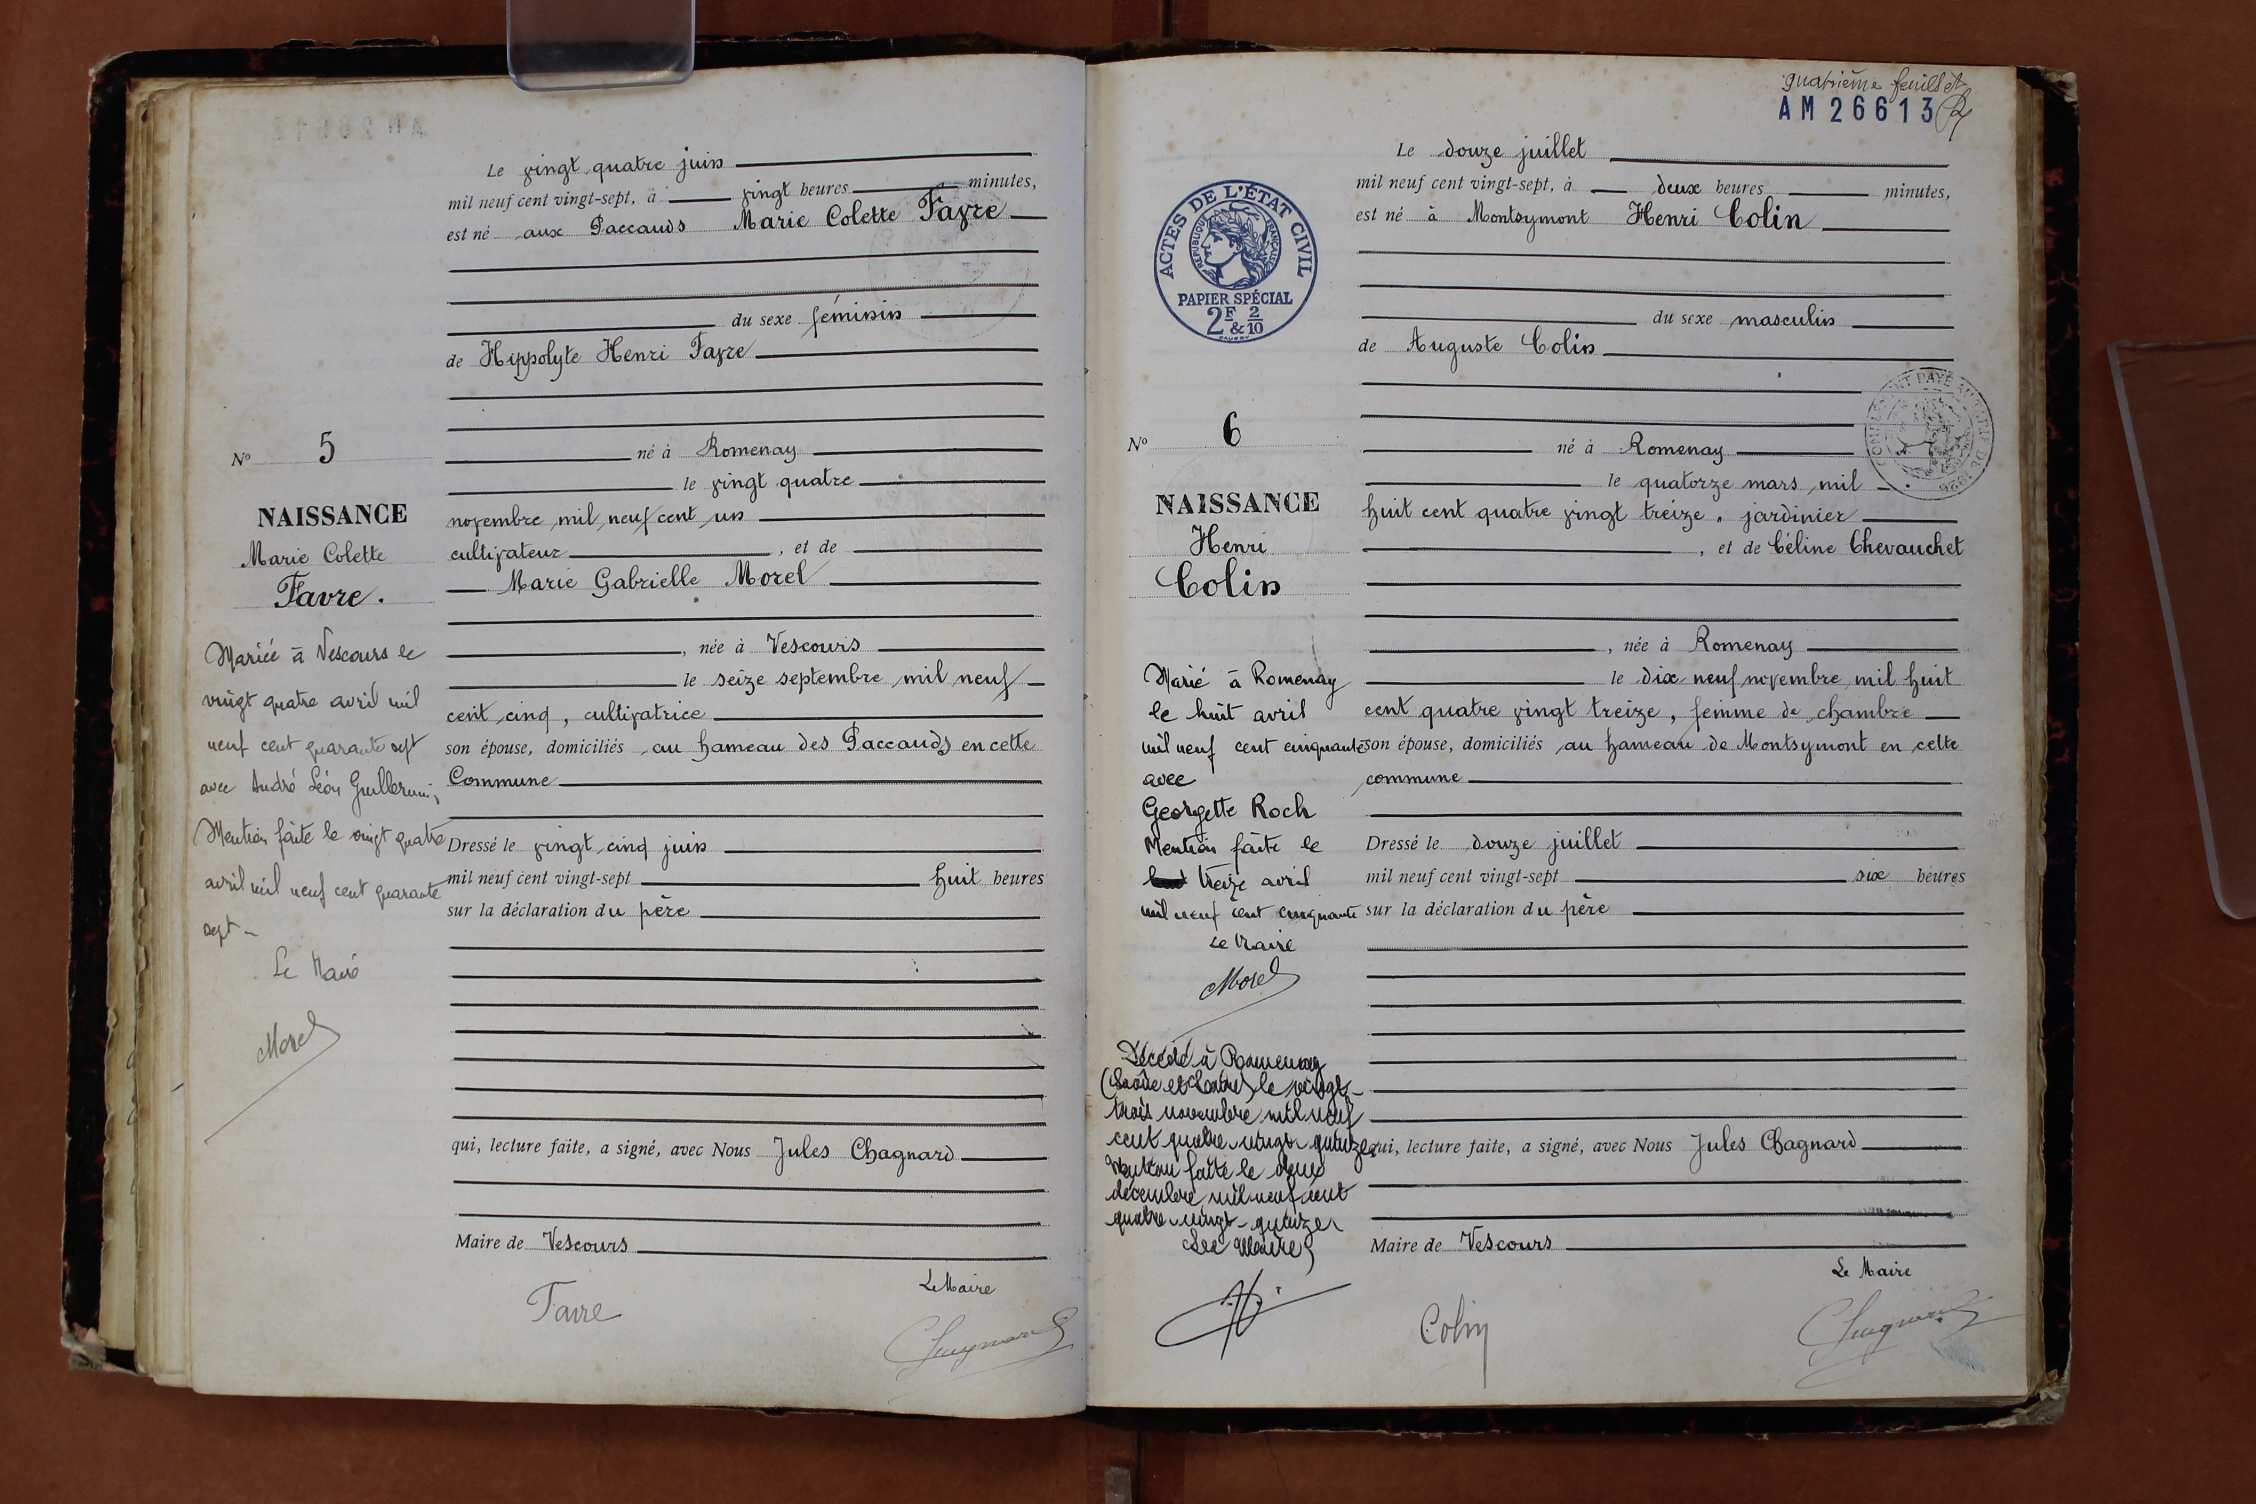 Le vingt quatre juin
mil neuf cent vingt-sept, à vingt heures minutes,
est né aux Paccauds Marie Colette Favre
du sexe féminin
de Hippolyte Henri Favre
né à Romenay
le vingt quatre
novembre mil neuf cent un
cultivateur, et de
Marie Gabrielle Morel
, née à Vescours
le seize septembre mil neuf
cent cinq, cultivatrice
son épouse, domiciliés au hameau des Paccauds en cette
Commune
Dressé le vingt cinq juin
mil neuf cent vingt-sept huit heures
sur la déclaration du père
qui, lecture faite, a signé, avec Nous Jules Chagnard
Maire de Vescours
Le Maire
Favre
Chagnard
No 5
NAISSANCE
Marie Colette
Favre.
Mariée à Vescours le
vingt quatre avril mil
neuf cent quarante sept
avec André Léon Guillermin,
Mention faite le vingt quatre
avril mil neuf cent quarante
sept
Le Maire
Morel
quatrième feuillet
AM 26613
ACTES DE L'ÉTAT CIVIL
RÉPUBLIQUE FRANÇAISE
PAPIER SPÉCIAL
2F & 2/10
Le douze juillet
mil neuf cent vingt-sept, à deux heures minutes,
est né à Montsymont Henri Colin
du sexe masculin
de Auguste Colin
né à Romenay
le quatorze mars mil
huit cent quatre vingt treize, jardinier
, et de Céline Chevauchet
, née à Romenay
le dix neuf novembre mil huit
cent quatre vingt treize, femme de chambre
son épouse, domiciliés au hameau de Montsymont en cette
commune
Dressé le douze juillet
mil neuf cent vingt-sept six heures
sur la déclaration du père
qui, lecture faite, a signé, avec Nous Jules Chagnard
Maire de Vescours
Le Maire
Colin
Chagnard
No 6
NAISSANCE
Henri
Colin
Marié à Romenay
le huit avril
mil neuf cent cinquante
avec
Georgette Roch
Mention faite le
treize avril
mil neuf cent cinquante
Le Maire
Morel
Décédé à Romenay
(Saône et Loire) le vingt-
trois novembre mil neuf
cent quatre-vingt-quinze
Mention faite le deux
décembre mil neuf cent
quatre-vingt-quinze
Le Maire